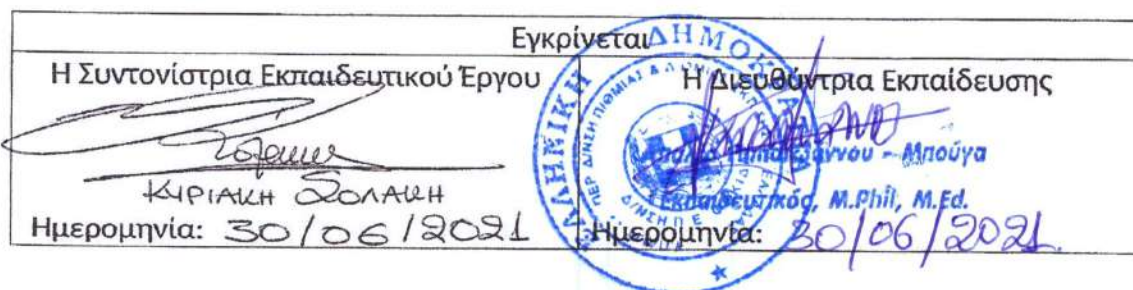 Εγκρίνεται
Η Συντονίστρια Εκπαιδευτικού Έργου
ΚΥΡΙΑΚΗ ΣΟΛΑΚΗ
Ημερομηνία: 30/06/2021
Η Διευθύντρια Εκπαίδευσης
Παπαϊωάννου – Μπούγα
Εκπαιδευτικός, M.Phil, M.Ed.
Ημερομηνία: 30/06/2021
ΕΛΛΗΝΙΚΗ ΔΗΜΟΚΡΑΤΙΑ